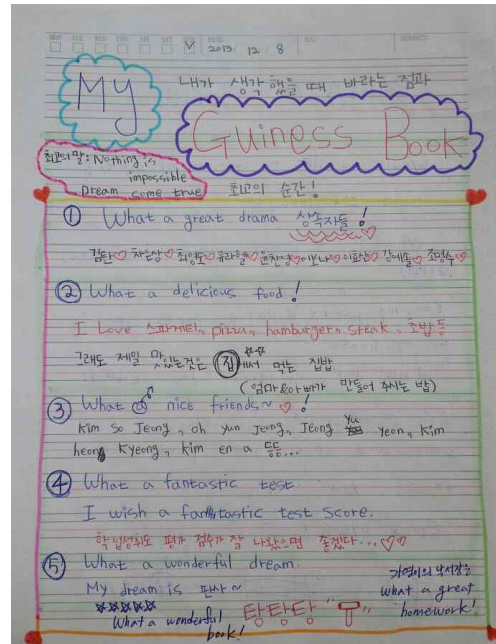 2013. 12. 8
내가 생각했을 때 바라는 점과
My
Guiness Book
최고의 말: Nothing is
impossible
Dream come true
최고의 순간!
① What a great drama 상속자들!
김탄♡ 차은상♡ 최영도♡ 유라헬♡ 윤찬영♡ 이보나♡ 이효신♡ 강예솔♡ 조명수♡
② What a delicious food!
I Love 스파게티, pizza, hamburger, steak, 초밥 등
그래도 제일 맛있는것은 집에서 먹는 집밥
(엄마&아빠가 만들어 주시는 밥)
③ What nice friends~ ♡!
Kim So Jeong, oh yun Jeong, Jeong yu yeon, Kim
heong Kyeong, Kim en a 등등...
④ What a fantastic test
I wish a fantastic test score.
학업성취도 평가 점수가 잘 나왔으면 좋겠다...♡♡
⑤ What a wonderful dream.
My dream is 판사~
What a wonderful
book!
탕탕탕 "T"
가영이의 낙서장은
what a great
homework!